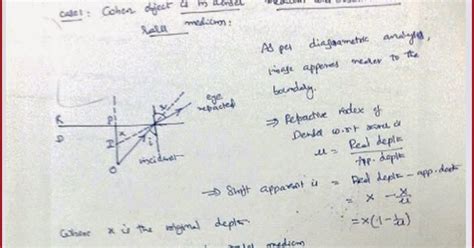 case1: When object is in denser medium and
Rarer medium:
As per diagrammatic analysis,
image apperes nearer to the
boundary.
eye
refracted
R
D
P
x
r
I
i
O
incident
⇒ Refractive index of
Denser w.r.t rarer is
u = Real depth / App. depth
⇒ Shift apparent is = Real depth - app. depth
= x - x/u
= x(1-1/u)
Where x is the original depth.
medium